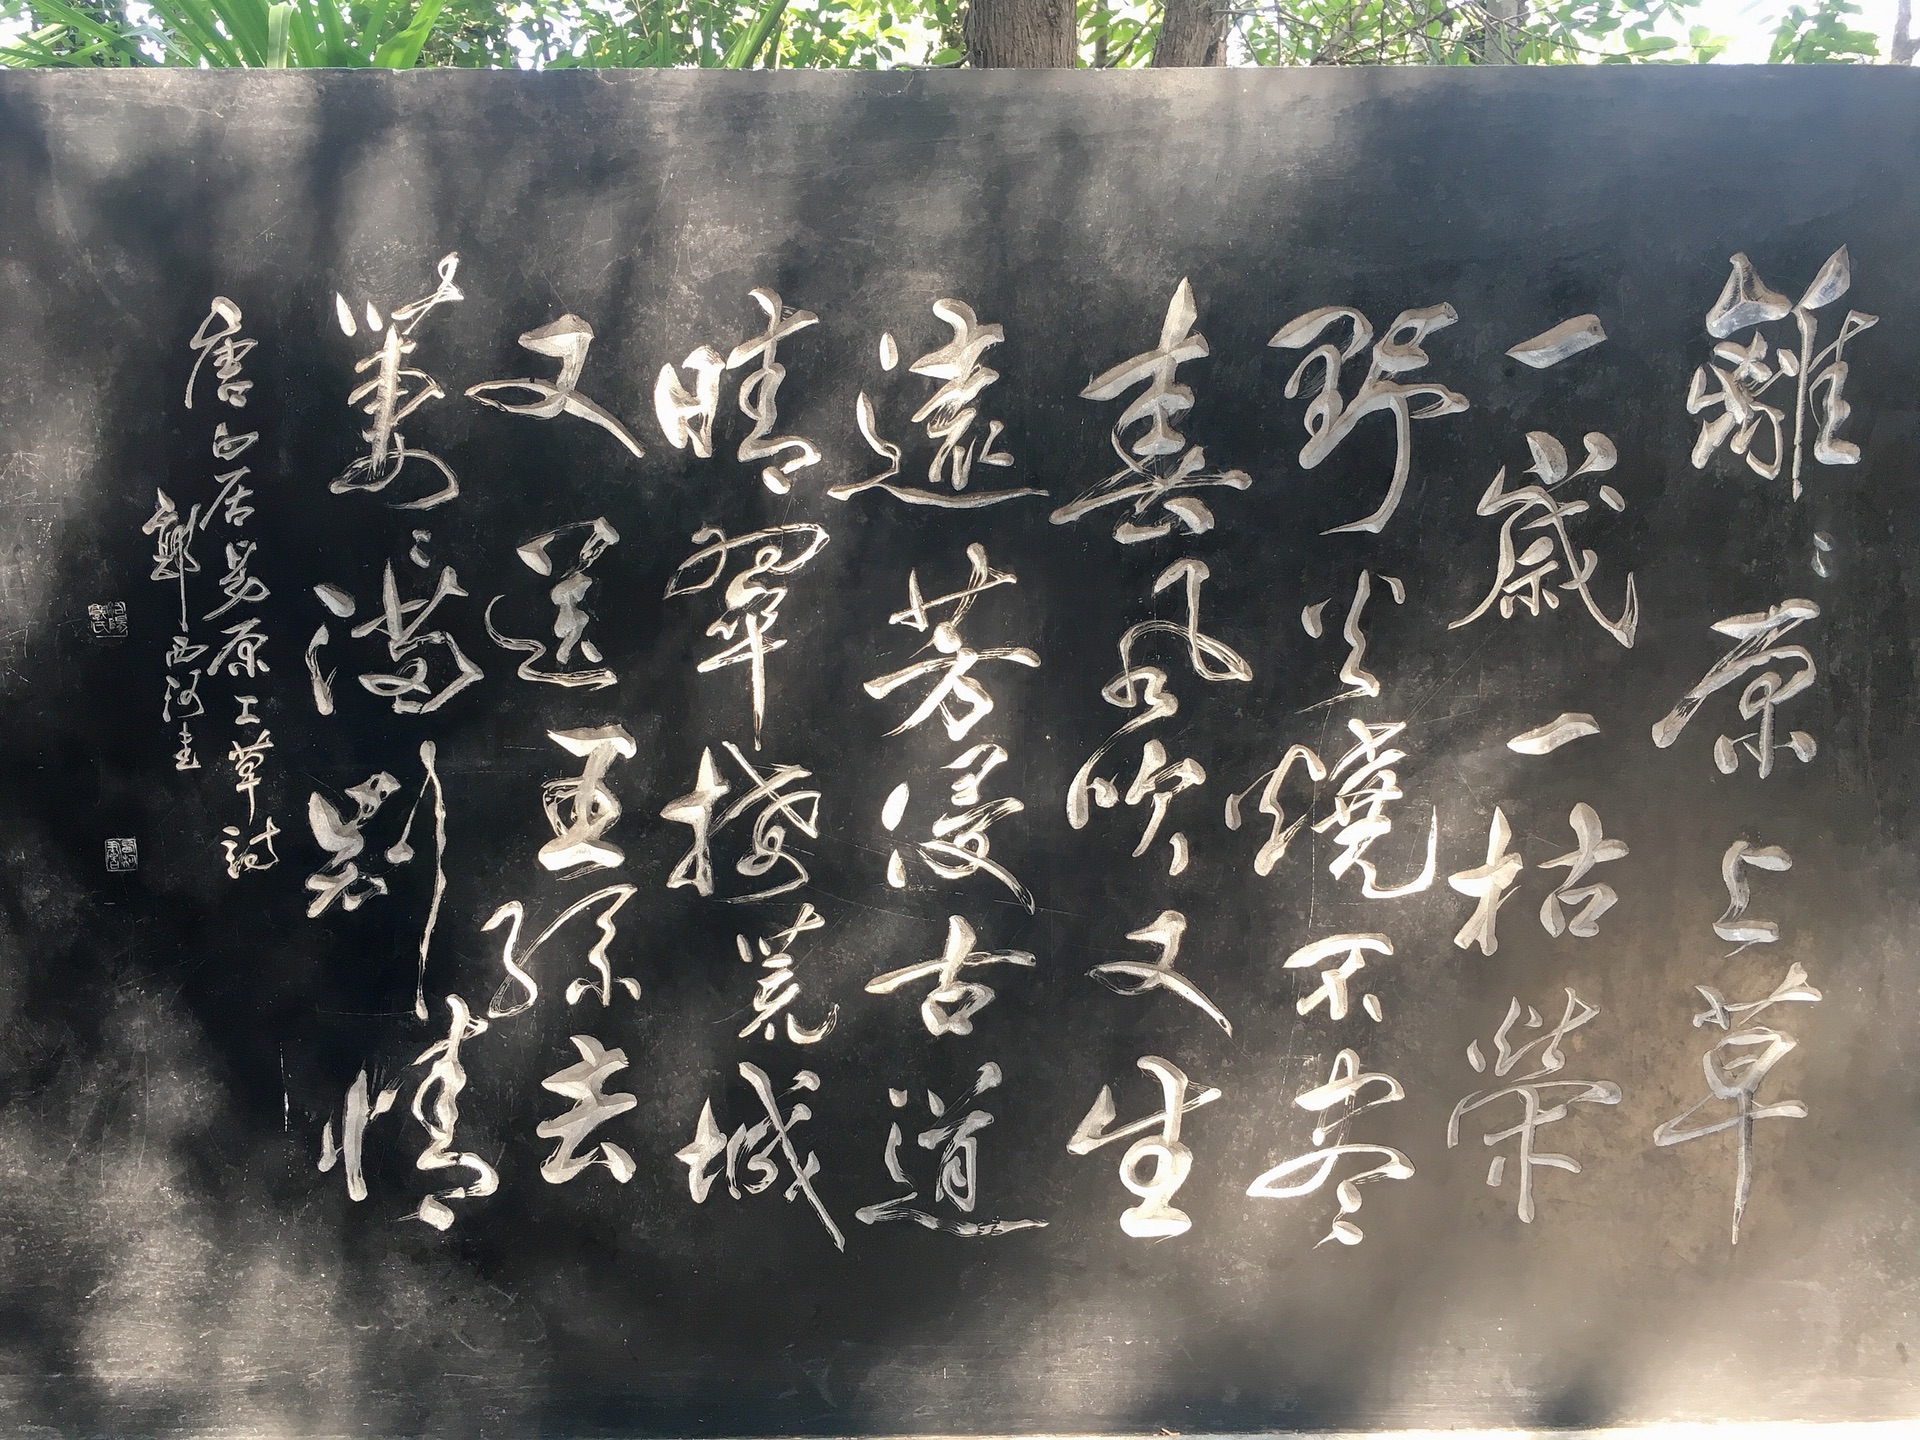 離〻原上草
一歲一枯榮
野火燒不盡
春風吹又生
遠芳侵古道
晴翠接荒城
又送王孫去
萋〻滿別情
唐白居易原上草詩
鄭西河書